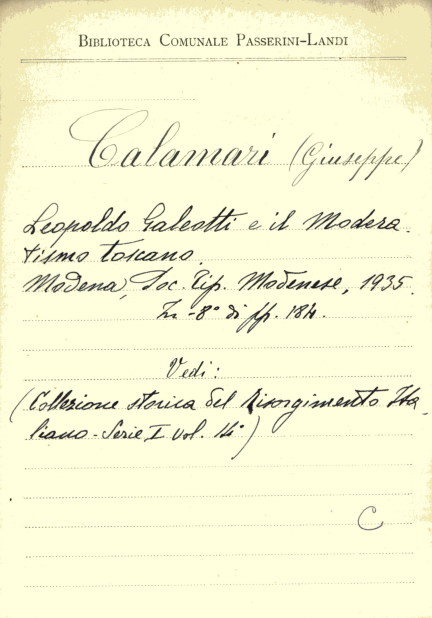 BIBLIOTECA COMUNALE PASSERINI-LANDI
Calamari (Giuseppe)
Leopoldo Galeotti e il Modera
tismo toscano.
Modena, Soc. Tip. Modenese, 1935.
In-8° di pp. 184.
Vedi:
(Collezione storica del Risorgimento Ita
liano - Serie I vol. 14°)
C